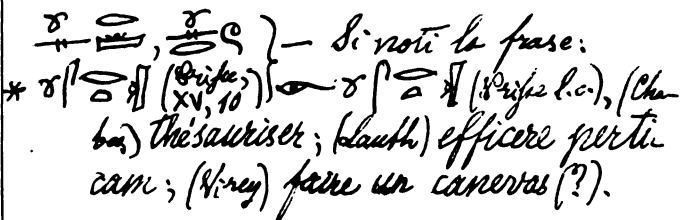 — Si noti la frase:
* (Prisse, XV, 10) (Prisse l.c.), (Cha-
bas) thésauriser; (Lauth) efficere perti-
cam; (Virey) faire un canevas (?).